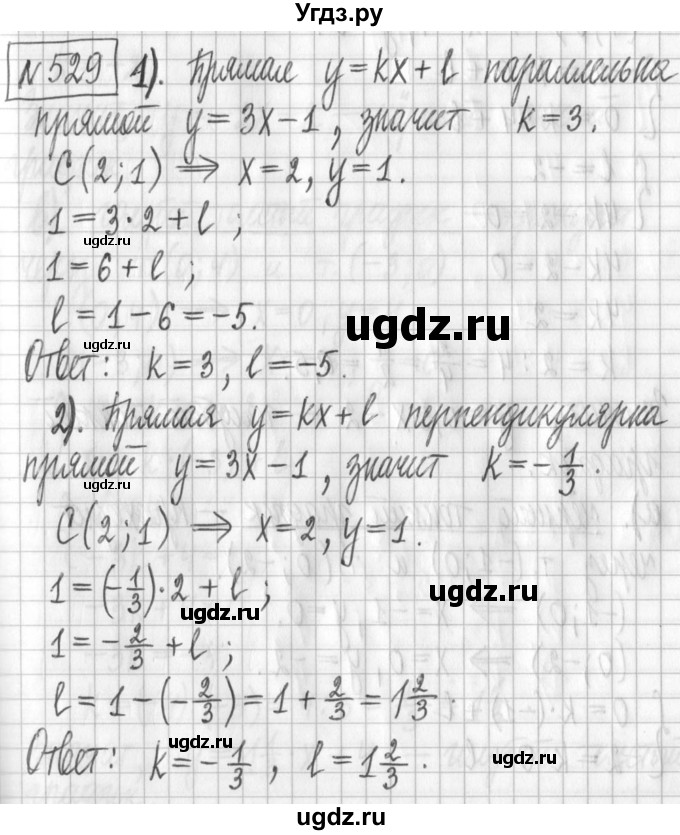 Угдз.ру
№529 1). Прямая y=kx+l параллельна
прямой y=3x-1, значит k=3.
C(2;1) ⇒ x=2, y=1.
1=3·2+l;
ugdz.ru
1=6+l;
l=1-6=-5.
ugdz.ru
ugdz.ru
Ответ: k=3, l=-5.
2). Прямая y=kx+l перпендикулярна
прямой y=3x-1, значит k=-1/3.
ugdz.ru
C(2;1) ⇒ x=2, y=1.
1=(-1/3)·2+l;
ugdz.ru
ugdz.ru
1=-2/3+l;
l=1-(-2/3)=1+2/3=1 2/3.
ugdz.ru
Ответ: k=-1/3, l=1 2/3.
ugdz.ru
Угдз.ру